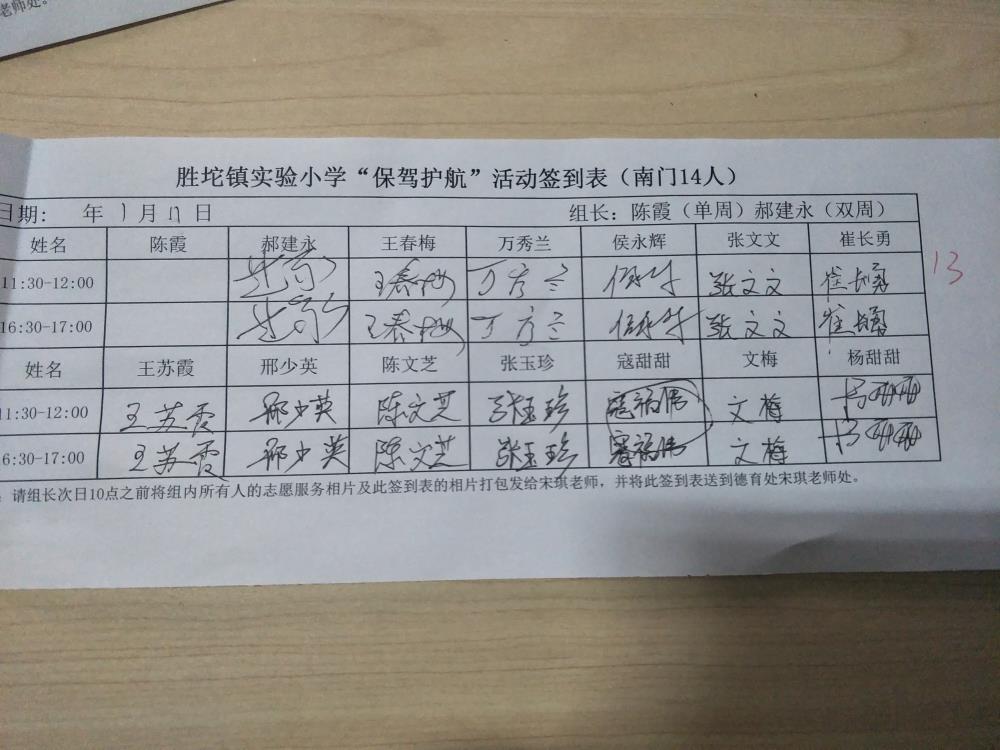 老师处。
胜坨镇实验小学“保驾护航”活动签到表（南门14人）
日期： 年 1 月 17 日 组长：陈霞（单周）郝建永（双周）
姓名 陈霞 郝建永 王春梅 万秀兰 侯永辉 张文文 崔长勇
11:30-12:00 王春梅 万秀兰 张文文 崔长勇
13
16:30-17:00 王春梅 万秀兰 张文文 崔长勇
姓名 王苏霞 邢少英 陈文芝 张玉珍 寇甜甜 文梅 杨甜甜
11:30-12:00 王苏霞 邢少英 陈文芝 张玉珍 寇福伟 文梅 杨甜甜
6:30-17:00 王苏霞 邢少英 陈文芝 张玉珍 寇福伟 文梅 杨甜甜
：请组长次日10点之前将组内所有人的志愿服务相片及此签到表的相片打包发给宋琪老师，并将此签到表送到德育处宋琪老师处。